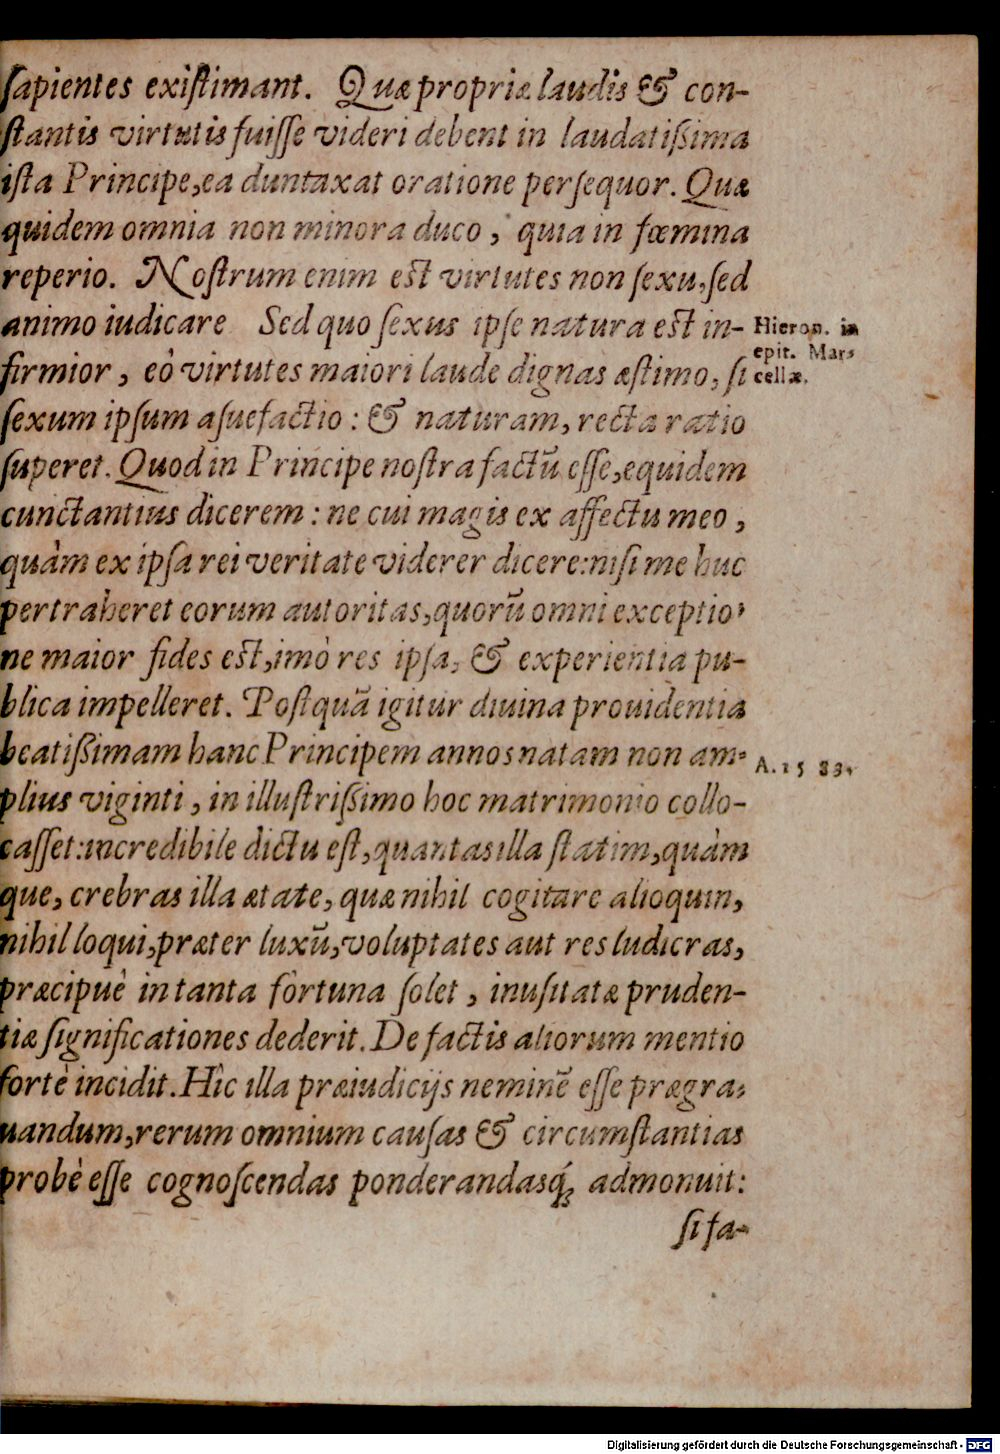 sapientes existimant. Quæ propriæ laudis & con-
stantis virtutis fuisse videri debent in laudatißima
ista Principe, ea duntaxat oratione persequor. Quæ
quidem omnia non minora duco, quia in fœmina
reperio. Nostrum enim est virtutes non sexu, sed
animo iudicare Sed quo sexus ipse natura est in-
Hieron. in
epit. Mar-
cellæ.
firmior, eò virtutes maiori laude dignas æstimo, si
sexum ipsum asuefactio: & naturam, recta ratio
superet. Quod in Principe nostra factū esse, equidem
cunctantius dicerem: ne cui magis ex affectu meo,
quàm ex ipsa rei veritate viderer dicere: nisi me huc
pertraheret eorum autoritas, quorū omni exceptio-
ne maior fides est, imò res ipsa, & experientia pu-
blica impelleret. Postquā igitur diuina prouidentia
beatißimam hanc Principem annos natam non am-
A. 1583.
plius viginti, in illustrißimo hoc matrimonio collo-
casset: incredibile dictu est, quantas illa statim, quàm
que, crebras illa ætate, quæ nihil cogitare alioquin,
nihil loqui, præter luxū, voluptates aut res ludicras,
præcipuè in tanta fortuna solet, inusitatæ pruden-
tiæ significationes dederit. De factis aliorum mentio
fortè incidit. Hîc illa præiudicijs neminē esse prægra-
uandum, rerum omnium causas & circumstantias
probè esse cognoscendas ponderandasq́; admonuit:
si fa-
Digitalisierung gefördert durch die Deutsche Forschungsgemeinschaft - DFG